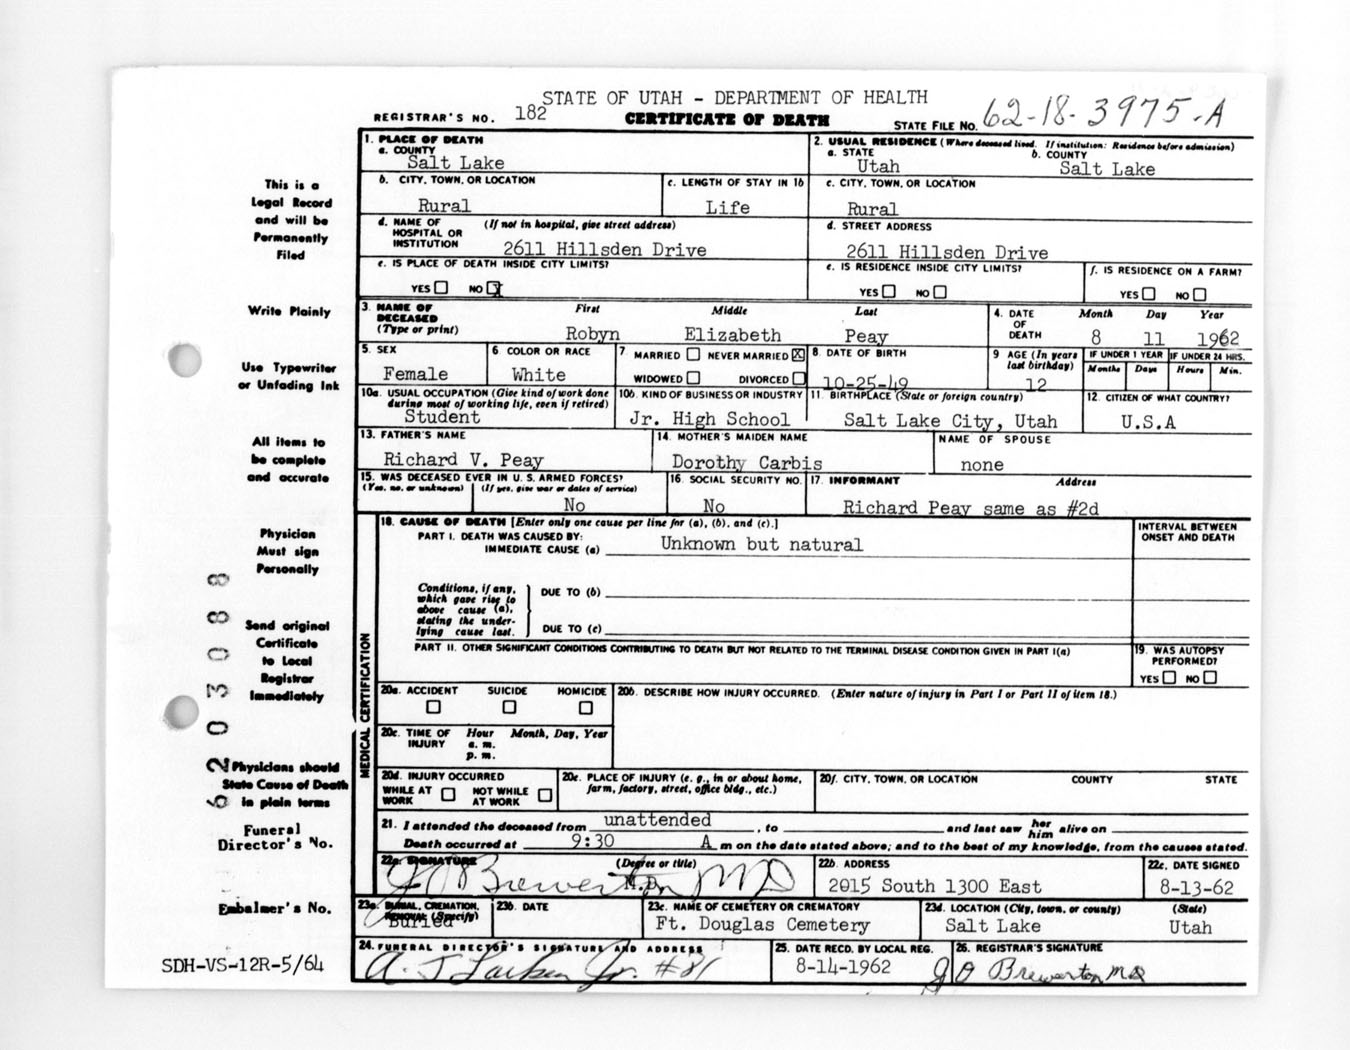 STATE OF UTAH - DEPARTMENT OF HEALTH
REGISTRAR'S NO. 182 CERTIFICATE OF DEATH STATE FILE NO. 62-18-3975-A
1. PLACE OF DEATH
a. COUNTY
Salt Lake
2. USUAL RESIDENCE (Where deceased lived. If institution: Residence before admission)
a. STATE b. COUNTY
Utah Salt Lake
b. CITY, TOWN, OR LOCATION c. LENGTH OF STAY IN 1b c. CITY, TOWN, OR LOCATION
Rural Life Rural
d. NAME OF HOSPITAL OR INSTITUTION (If not in hospital, give street address)
2611 Hillsden Drive
d. STREET ADDRESS
2611 Hillsden Drive
e. IS PLACE OF DEATH INSIDE CITY LIMITS?
YES NO X
e. IS RESIDENCE INSIDE CITY LIMITS?
YES NO
f. IS RESIDENCE ON A FARM?
YES NO
3. NAME OF DECEASED (Type or print)
First Middle Last
Robyn Elizabeth Peay
4. DATE OF DEATH
Month Day Year
8 11 1962
5. SEX
Female
6. COLOR OR RACE
White
7. MARRIED NEVER MARRIED X
WIDOWED DIVORCED
8. DATE OF BIRTH
10-25-49
9 AGE (In years last birthday)
12
IF UNDER 1 YEAR IF UNDER 24 HRS.
Months Days Hours Min.
10a. USUAL OCCUPATION (Give kind of work done during most of working life, even if retired)
Student
10b. KIND OF BUSINESS OR INDUSTRY
Jr. High School
11. BIRTHPLACE (State or foreign country)
Salt Lake City, Utah
12. CITIZEN OF WHAT COUNTRY?
U.S.A
13. FATHER'S NAME
Richard V. Peay
14. MOTHER'S MAIDEN NAME
Dorothy Carbis
NAME OF SPOUSE
none
15. WAS DECEASED EVER IN U.S. ARMED FORCES?
(Yes, no, or unknown) (If yes, give war or dates of service)
No
16. SOCIAL SECURITY NO.
No
17. INFORMANT Address
Richard Peay same as #2d
MEDICAL CERTIFICATION
18. CAUSE OF DEATH [Enter only one cause per line for (a), (b), and (c).]
PART I. DEATH WAS CAUSED BY:
IMMEDIATE CAUSE (a) Unknown but natural
INTERVAL BETWEEN ONSET AND DEATH
Conditions, if any, which gave rise to above cause (a), stating the under-lying cause last.
DUE TO (b)
DUE TO (c)
PART II. OTHER SIGNIFICANT CONDITIONS CONTRIBUTING TO DEATH BUT NOT RELATED TO THE TERMINAL DISEASE CONDITION GIVEN IN PART I(a)
19. WAS AUTOPSY PERFORMED?
YES NO
20a. ACCIDENT SUICIDE HOMICIDE
20b. DESCRIBE HOW INJURY OCCURRED. (Enter nature of injury in Part I or Part II of item 18.)
20c. TIME OF INJURY
Hour Month, Day, Year
a. m.
p. m.
20d. INJURY OCCURRED
WHILE AT WORK NOT WHILE AT WORK
20e. PLACE OF INJURY (e. g., in or about home, farm, factory, street, office bldg., etc.)
20f. CITY, TOWN, OR LOCATION COUNTY STATE
21. I attended the deceased from unattended, to and last saw her him alive on
Death occurred at 9:30 A m on the date stated above; and to the best of my knowledge, from the causes stated.
22a. SIGNATURE (Degree or title)
J O Brewerton MD
M.D.
22b. ADDRESS
2015 South 1300 East
22c. DATE SIGNED
8-13-62
23a. BURIAL, CREMATION, REMOVAL (Specify)
Buried
23b. DATE
23c. NAME OF CEMETERY OR CREMATORY
Ft. Douglas Cemetery
23d. LOCATION (City, town, or county) (State)
Salt Lake Utah
24. FUNERAL DIRECTOR'S SIGNATURE AND ADDRESS
A. J Larkin Jr. #81
25. DATE RECD. BY LOCAL REG.
8-14-1962
26. REGISTRAR'S SIGNATURE
J O Brewerton MD
This is a
Legal Record
and will be
Permanently
Filed
Write Plainly
Use Typewriter
or Unfading Ink
All items to
be complete
and accurate
Physician
Must sign
Personally
Send original
Certificate
to Local
Registrar
Immediately
Physicians should
State Cause of Death
in plain terms
Funeral
Director's No.
Embalmer's No.
SDH-VS-12R-5/64